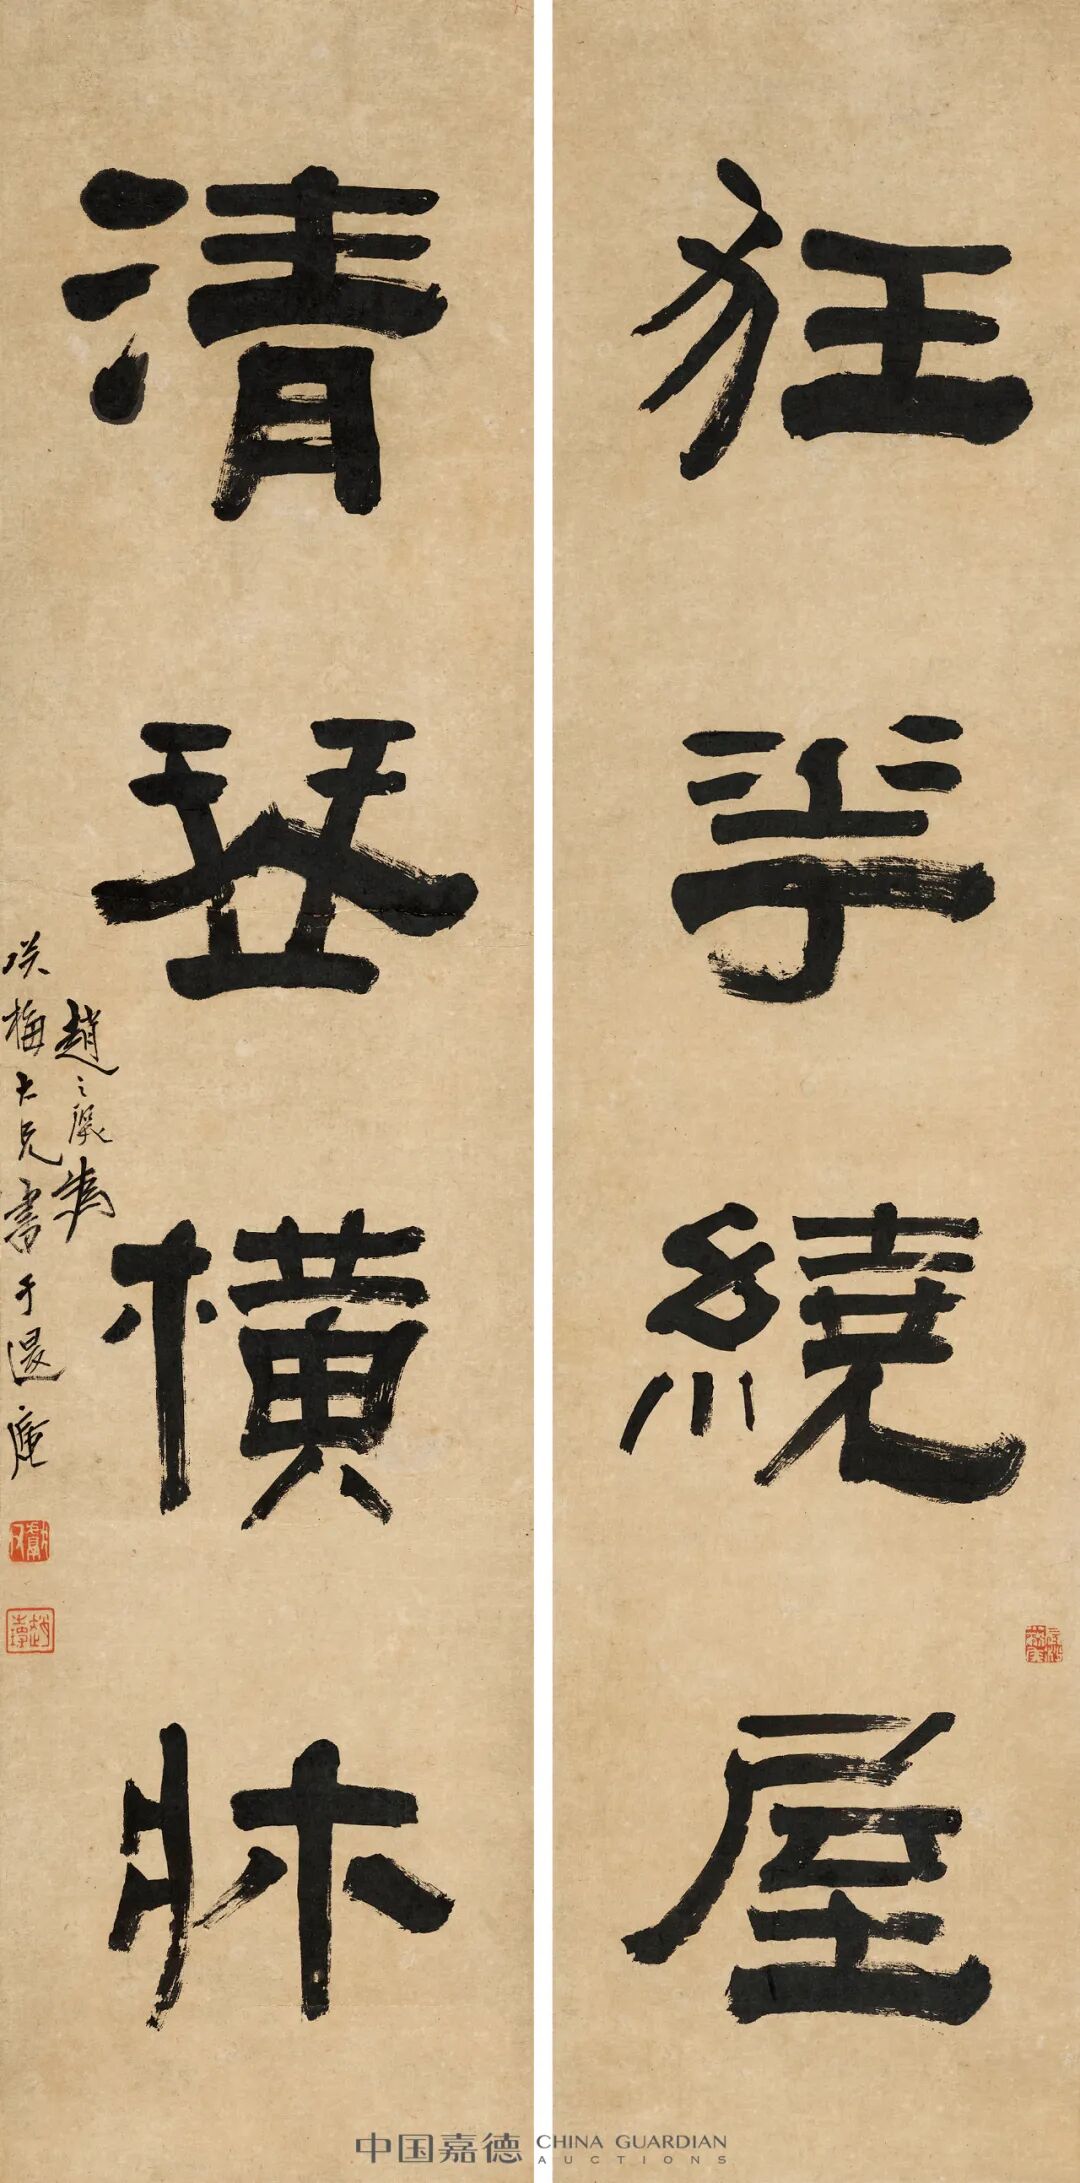 狂華繞屋
清琴橫牀
趙之琛為
咲梅大兄書于退庵
獻父
中国嘉德 CHINA GUARDIAN
AUCTIONS